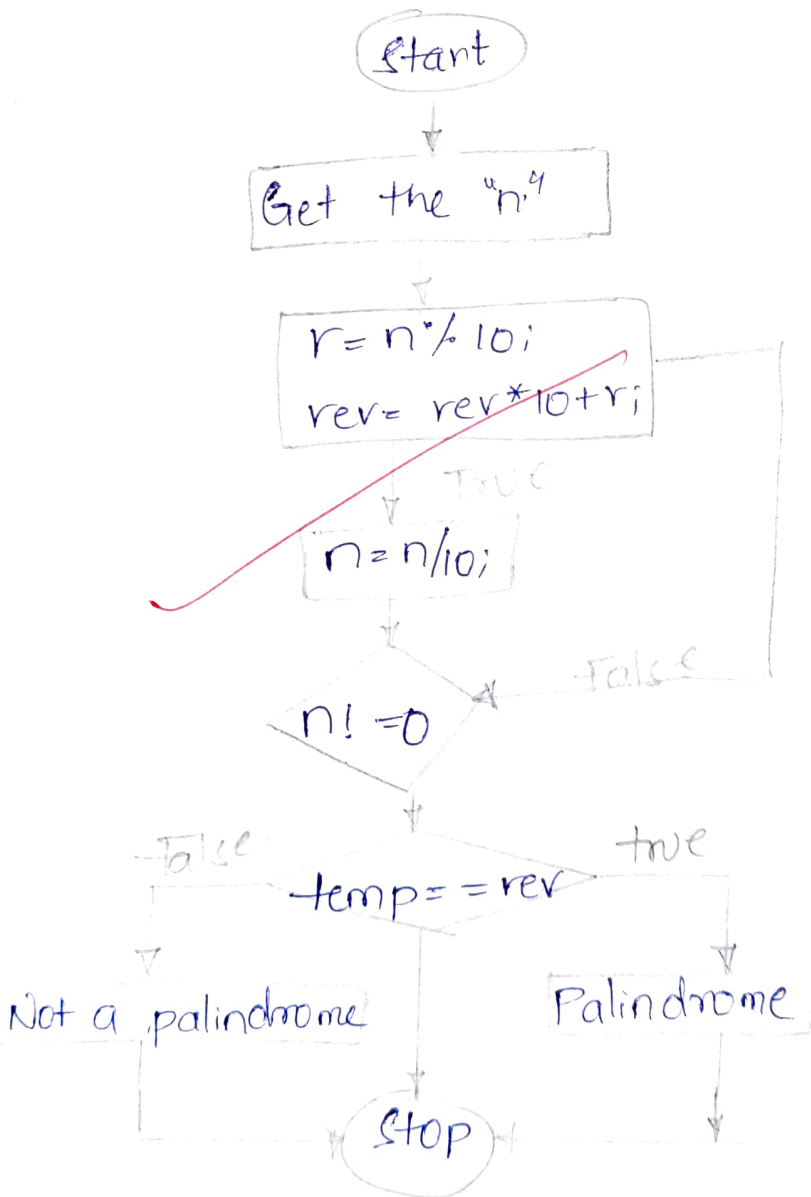 Start
Get the "n."
r=n%10;
rev= rev*10+r;
True
n=n/10;
False
n! =0
False
true
temp= =rev
Not a palindrome
Palindrome
Stop